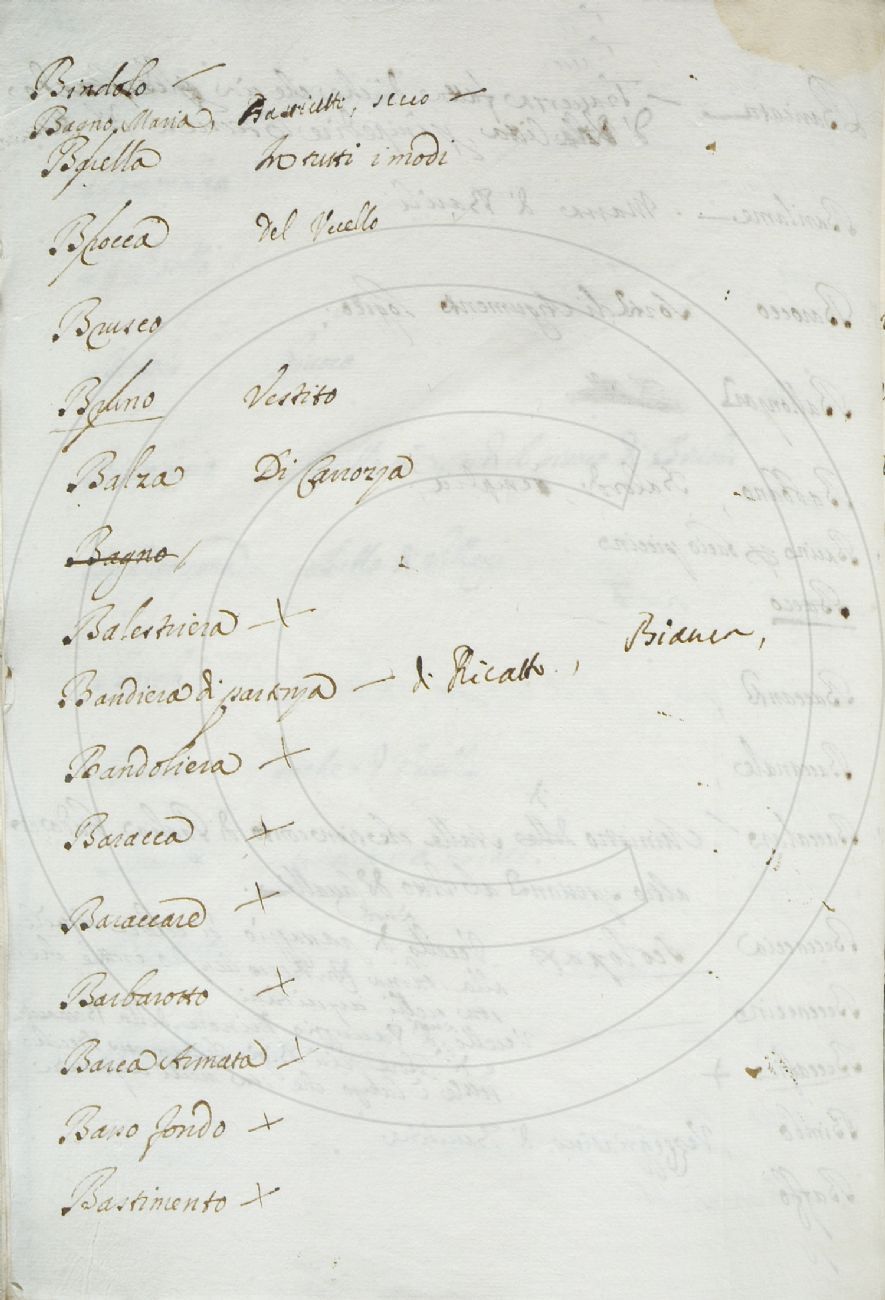 Bindolo
Bagno, Maria, secco
Brella In tutti i modi
Brocca Del Vcello
Brusco
Bruno Vestito
Balza Di Carrozza
Bagno
Balestriera +
Bandiera di partenza di Ricatto, Bianca,
Bandoliera +
Baracca +
Baraccare +
Barbarotto +
Barca Armata +
Basso fondo +
Bastimento +